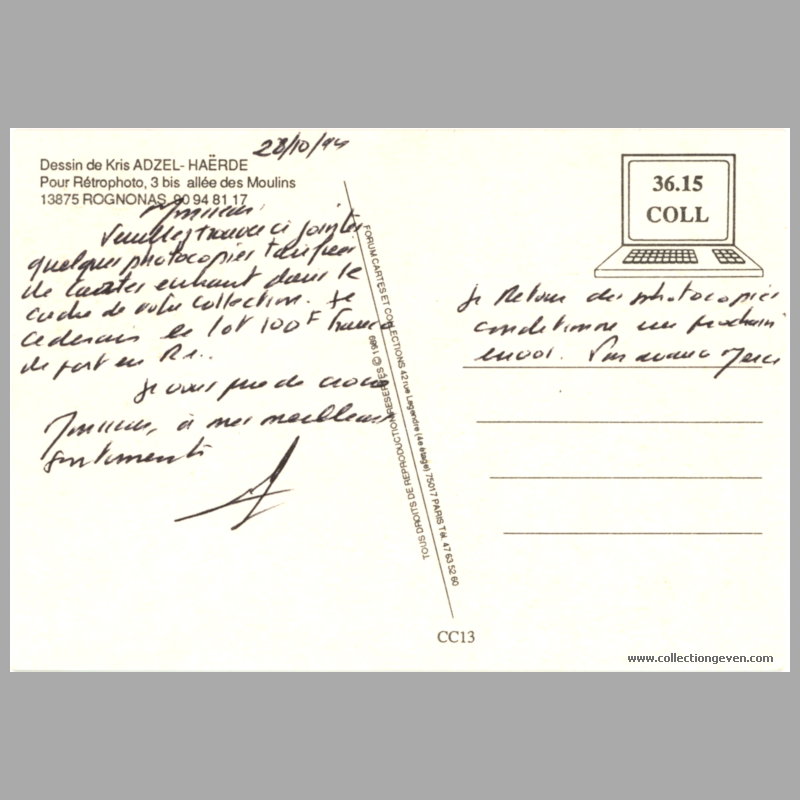 28/10/94
Dessin de Kris ADZEL-HAËRDE
Pour Rétrophoto, 3 bis allée des Moulins
13875 ROGNONAS 90 94 81 17
Monsieur
Veuillez trouver ci joint
quelques photocopies
de cartes entrant dans le
cadre de votre collection. Je
cederais le lot 100F Franco
de port en
Je vous prie de croire
Monsieur, à mes meilleurs
sentiments
FORUM CARTES ET COLLECTIONS 42 rue Legendre (4e étage) 75017 PARIS Tél. 47 63 52 60
TOUS DROITS DE REPRODUCTION RÉSERVÉS © 1989
CC13
36.15
COLL
Le Retour des photocopies
conditionne un prochain
envoi. Par avance Merci
www.collectiongeven.com